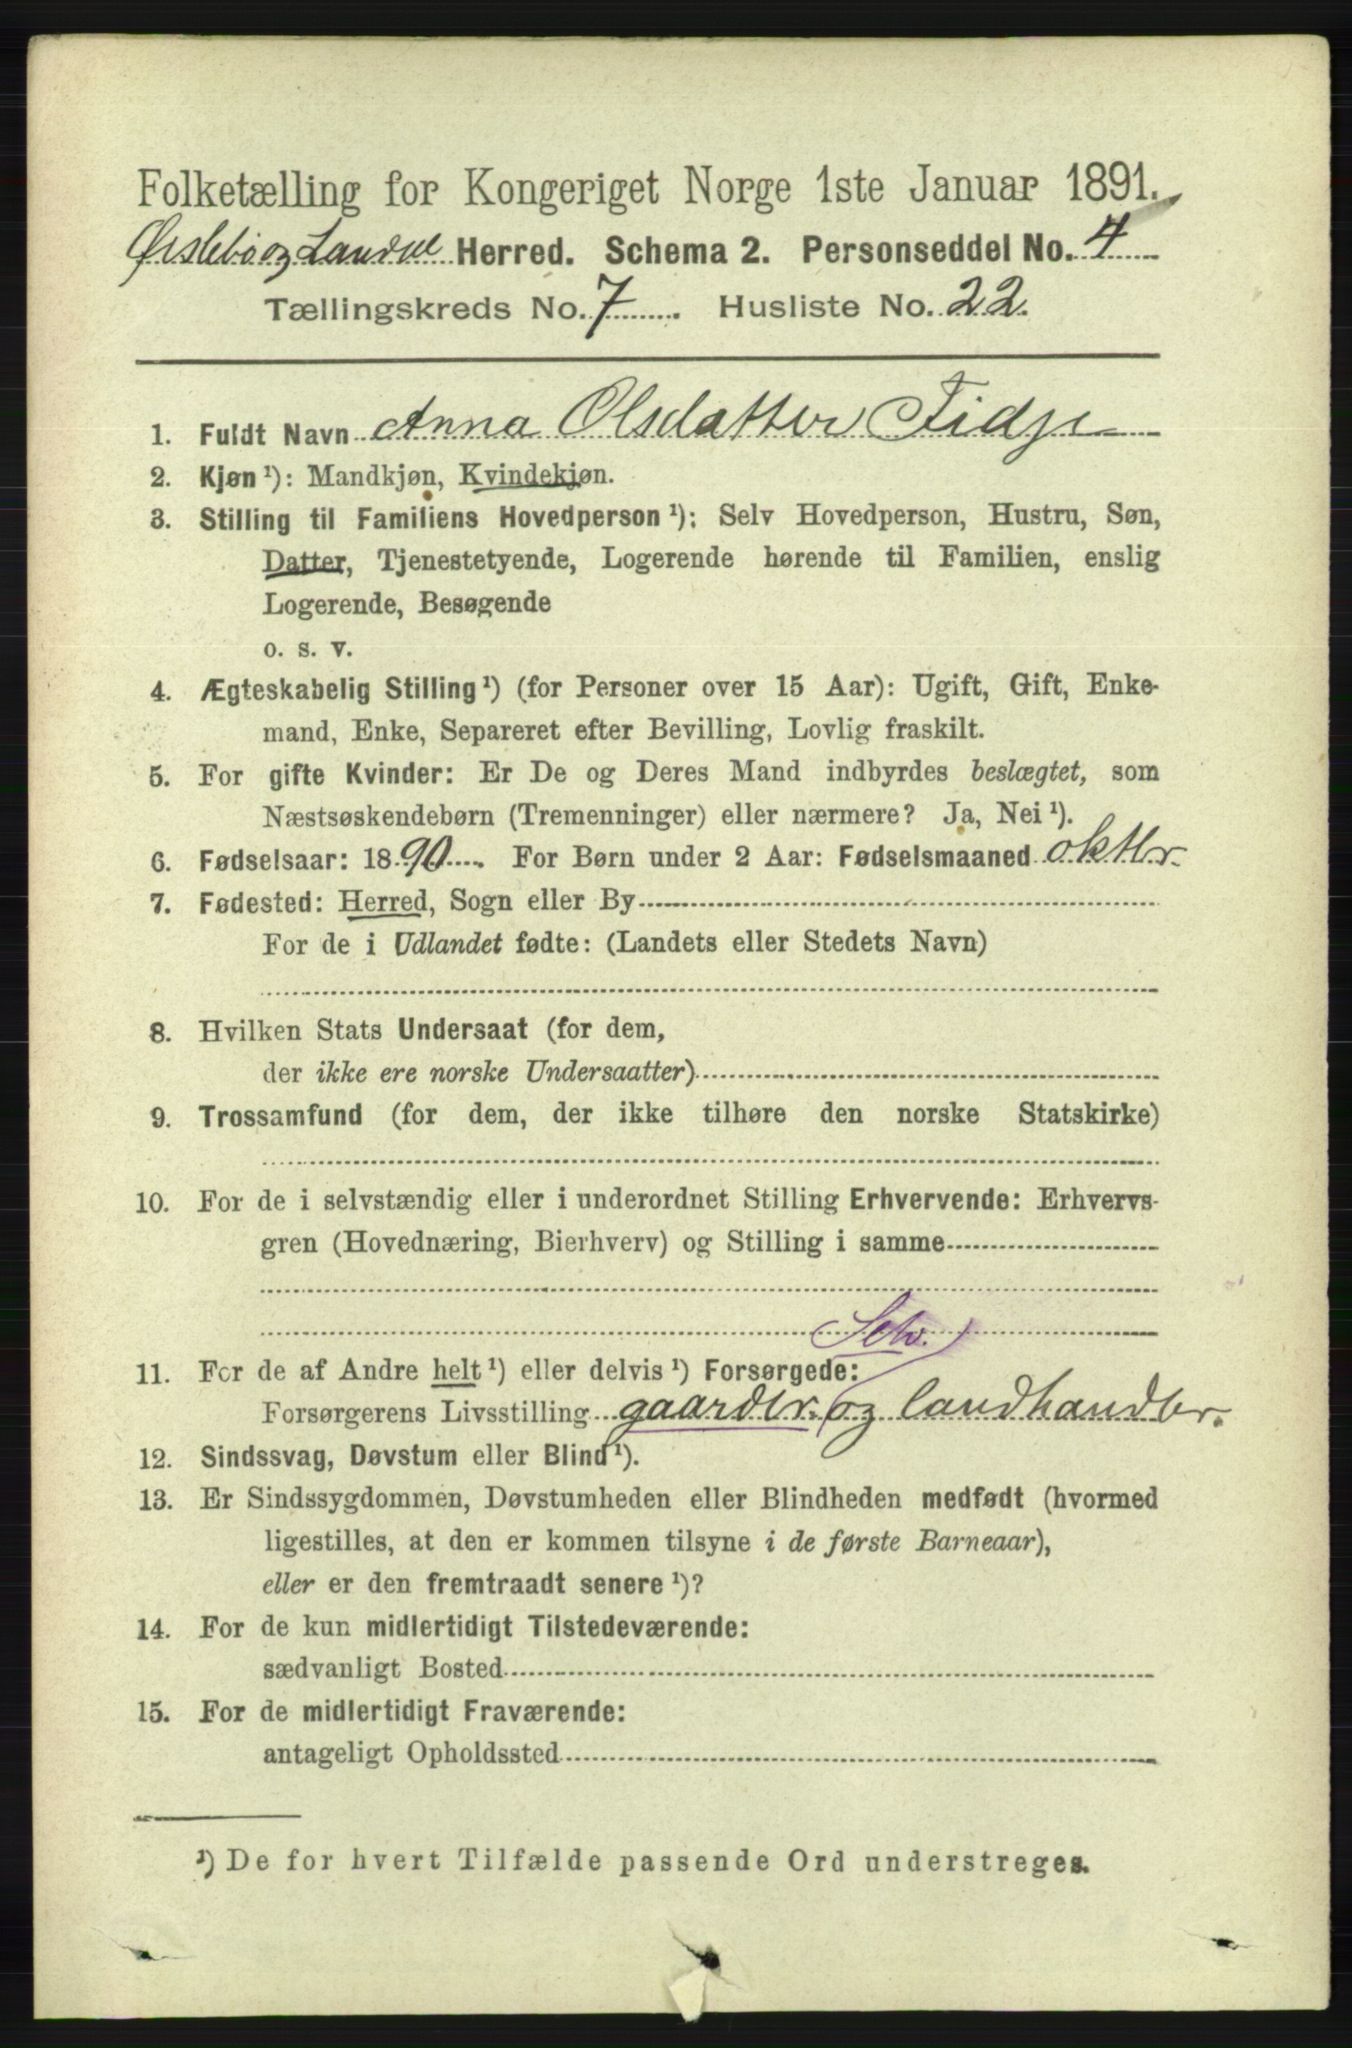 Folketælling for Kongeriget Norge 1ste Januar 1891.
Øislebø og Laudal Herred. Schema 2. Personseddel No. 4
Tællingskreds No. 7. Husliste No. 22.
1. Fuldt Navn Anna Olsdatter Fidje
2. Kjøn ¹): Mandkjøn, Kvindekjøn.
3. Stilling til Familiens Hovedperson ¹): Selv Hovedperson, Hustru, Søn,
Datter, Tjenestetyende, Logerende hørende til Familien, enslig
Logerende, Besøgende
o. s. v.
4. Ægteskabelig Stilling ¹) (for Personer over 15 Aar): Ugift, Gift, Enke-
mand, Enke, Separeret efter Bevilling, Lovlig fraskilt.
5. For gifte Kvinder: Er De og Deres Mand indbyrdes beslægtet, som
Næstsøskendebørn (Tremenninger) eller nærmere? Ja, Nei ¹).
6. Fødselsaar: 1890. For Børn under 2 Aar: Fødselsmaaned oktbr.
7. Fødested: Herred, Sogn eller By
For de i Udlandet fødte: (Landets eller Stedets Navn)
8. Hvilken Stats Undersaat (for dem,
der ikke ere norske Undersaatter)
9. Trossamfund (for dem, der ikke tilhøre den norske Statskirke)
10. For de i selvstændig eller i underordnet Stilling Erhvervende: Erhvervs-
gren (Hovednæring, Bierhverv) og Stilling i samme
Selv.
11. For de af Andre helt ¹) eller delvis ¹) Forsørgede:
Forsørgerens Livsstilling gaardbr. og landhandler.
12. Sindssvag, Døvstum eller Blind ¹).
13. Er Sindssygdommen, Døvstumheden eller Blindheden medfødt (hvormed
ligestilles, at den er kommen tilsyne i de første Barneaar),
eller er den fremtraadt senere ¹)?
14. For de kun midlertidigt Tilstedeværende:
sædvanligt Bosted
15. For de midlertidigt Fraværende:
antageligt Opholdssted
¹) De for hvert Tilfælde passende Ord understreges.